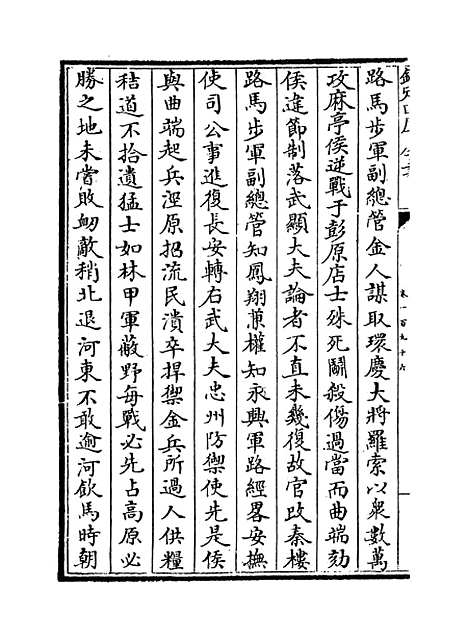 路馬步軍副總管金人謀取環慶大將羅索以衆數萬
攻麻亭侯逆戰于彭原店士殊死鬭殺傷過當而曲端劾
侯違節制落武顯大夫論者不直未幾復故官改秦樓
路馬步軍副總管知鳳翔兼權知永興軍路經畧安撫
使司公事進復長安轉右武大夫忠州防禦使先是侯
與曲端起兵涇原招流民潰卒捍禦金兵所過人供糧
秸道不拾遺猛士如林甲軍蔽野每戰必先占高原必
勝之地未嘗敗衂敵稍北退河東不敢逾河飲馬時朝
卷一百九十六